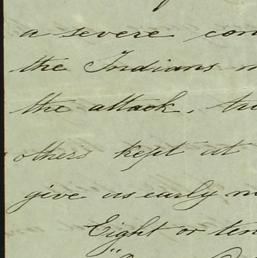 a severe con
the Indians
the attack, the
others kept at
give us early
Eight or ten